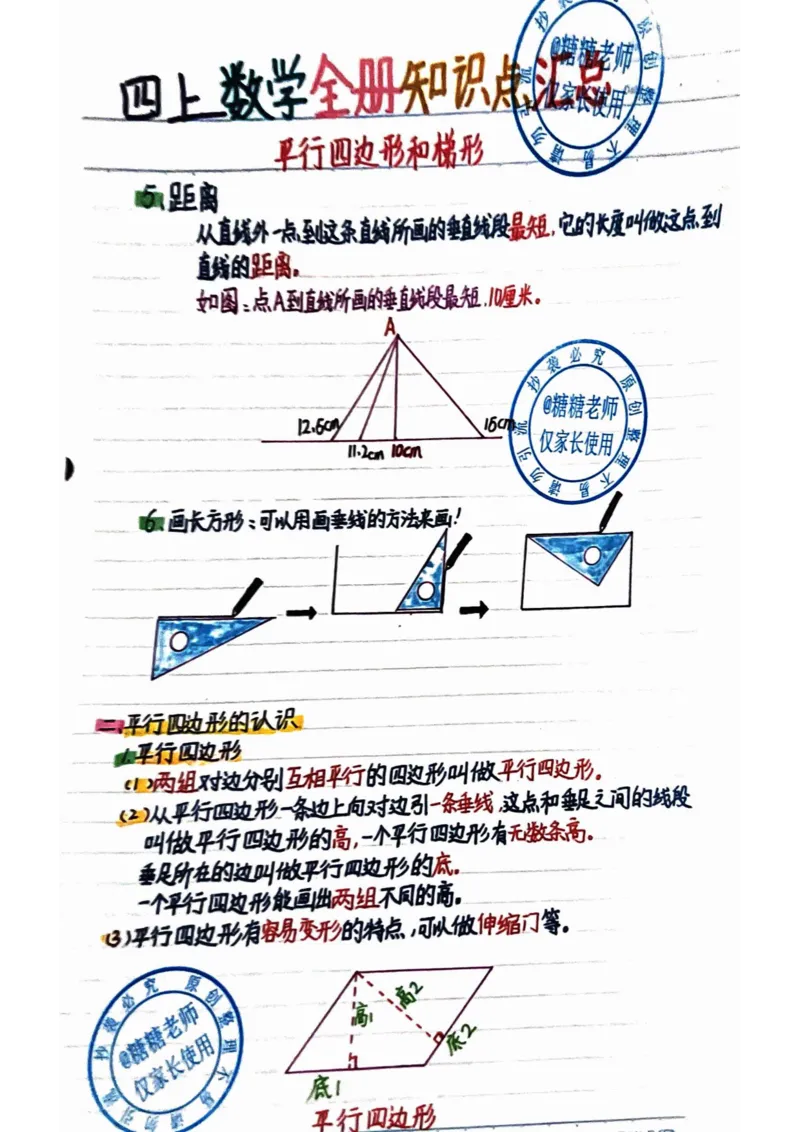 四上数学全册知识点汇总
平行四边形和梯形
抄袭必究 原创整理不易 请勿引流
@糖糖老师
仅家长使用
5、距离
从直线外一点到这条直线所画的垂直线段最短,它的长度叫做这点到
直线的距离。
如图:点A到直线所画的垂直线段最短,10厘米。
A
12.6cm
11.2cm
10cm
15cm
抄袭必究 原创整理不易 请勿引流
@糖糖老师
仅家长使用
6、画长方形:可以用画垂线的方法来画!
二、平行四边形的认识
1.平行四边形
(1)两组对边分别互相平行的四边形叫做平行四边形。
(2)从平行四边形一条边上向对边引一条垂线,这点和垂足之间的线段
叫做平行四边形的高,一个平行四边形有无数条高。
垂足所在的边叫做平行四边形的底。
一个平行四边形能画出两组不同的高。
(3)平行四边形有容易变形的特点,可以做伸缩门等。
抄袭必究 原创整理不易 请勿引流
@糖糖老师
仅家长使用
高1
高2
底2
底1
平行四边形